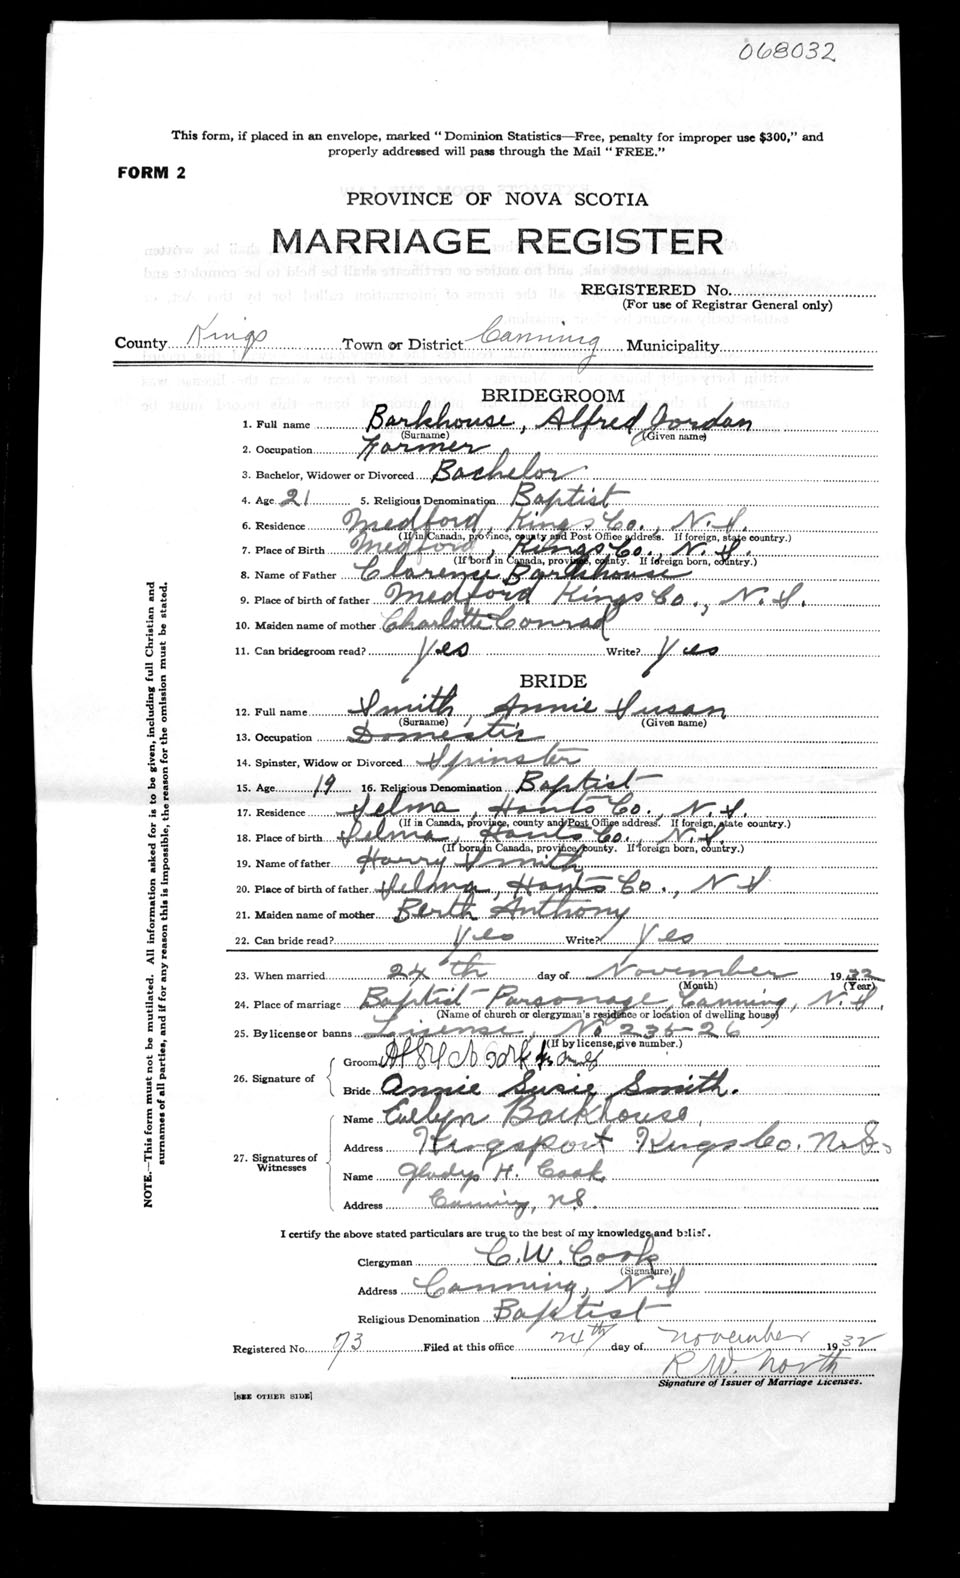 068032
This form, if placed in an envelope, marked "Dominion Statistics—Free, penalty for improper use $300," and
properly addressed will pass through the Mail "FREE."
FORM 2
PROVINCE OF NOVA SCOTIA
MARRIAGE REGISTER
REGISTERED No.
(For use of Registrar General only)
County Kings Town or District Canning Municipality
BRIDEGROOM
1. Full name Barkhouse, Alfred Jordan
(Surname) (Given name)
2. Occupation Farmer
3. Bachelor, Widower or Divorced Bachelor
4. Age 21 5. Religious Denomination Baptist
6. Residence Medford, Kings Co., N.S.
(If in Canada, province, county and Post Office address. If foreign, state country.)
7. Place of Birth Medford, Kings Co., N.S.
(If born in Canada, province, county. If foreign born, country.)
8. Name of Father Clarence Barkhouse
9. Place of birth of father Medford Kings Co., N.S.
10. Maiden name of mother Charlotte Conrad
11. Can bridegroom read? Yes Write? Yes
BRIDE
12. Full name Smith, Annie Susan
(Surname) (Given name)
13. Occupation Domestic
14. Spinster, Widow or Divorced Spinster
15. Age 19 16. Religious Denomination Baptist
17. Residence Selma, Hants Co., N.S.
(If in Canada, province, county and Post Office address. If foreign, state country.)
18. Place of birth Selma, Hants Co., N.S.
(If born in Canada, province county. If foreign born, country.)
19. Name of father Harry Smith
20. Place of birth of father Selma, Hants Co., N S
21. Maiden name of mother Berth Anthony
22. Can bride read? Yes Write? Yes
23. When married 24th day of November 1932
(Month) (Year)
24. Place of marriage Baptist Parsonage Canning, N.S.
(Name of church or clergyman's residence or location of dwelling house)
25. By license or banns License, No 235-26
(If by license, give number.)
26. Signature of
Groom
Bride Annie Susie Smith.
27. Signatures of Witnesses
Name Evelyn Barkhouse,
Address Kingsport Kings Co. N.S.
Name Gladys H. Cook
Address Canning, N.S.
I certify the above stated particulars are true to the best of my knowledge and belief.
Clergyman C. W. Cook
(Signature)
Address Canning, N S
Religious Denomination Baptist
Registered No. 73 Filed at this office 24th day of November 1932
R W North
Signature of Issuer of Marriage Licenses.
[SEE OTHER SIDE]
NOTE.—This form must not be mutilated. All information asked for is to be given, including full Christian and
surnames of all parties, and if for any reason this is impossible, the reason for the omission must be stated.